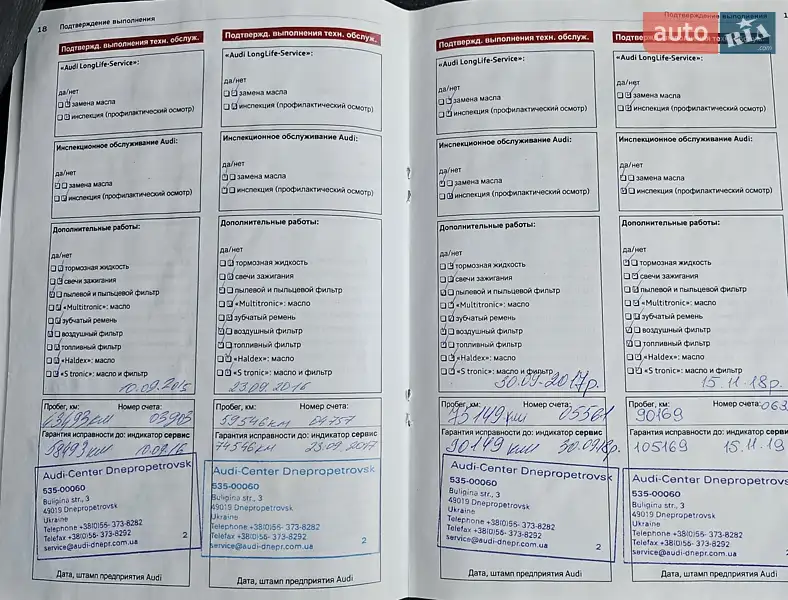 18 Подтверждение выполнения
Подтвержд. выполнения техн. обслуж.
«Audi LongLife-Service»:
да/нет
замена масла
инспекция (профилактический осмотр)
Инспекционное обслуживание Audi:
да/нет
замена масла
инспекция (профилактический осмотр)
Дополнительные работы:
да/нет
тормозная жидкость
свечи зажигания
пылевой и пыльцевой фильтр
«Multitronic»: масло
зубчатый ремень
воздушный фильтр
топливный фильтр
«Haldex»: масло
«S tronic»: масло и фильтр
10.09.2015
Пробег, км: Номер счета:
43493км 03903
Гарантия исправности до: индикатор сервис
58493км 10.09.16
Audi-Center Dnepropetrovsk
535-00060
Buligina str., 3
49019 Dnepropetrovsk
Ukraine
Telephone +38(0)56- 373-8282
Telefax +38(0)56- 373-8292
service@audi-dnepr.com.ua 2
Дата, штамп предприятия Audi
Подтвержд. выполнения техн. обслуж.
«Audi LongLife-Service»:
да/нет
замена масла
инспекция (профилактический осмотр)
Инспекционное обслуживание Audi:
да/нет
замена масла
инспекция (профилактический осмотр)
Дополнительные работы:
да/нет
тормозная жидкость
свечи зажигания
пылевой и пыльцевой фильтр
«Multitronic»: масло
зубчатый ремень
воздушный фильтр
топливный фильтр
«Haldex»: масло
«S tronic»: масло и фильтр
23.09.2016
Пробег, км: Номер счета:
59546км 04757
Гарантия исправности до: индикатор сервис
74546км 23.09.2017
Audi-Center Dnepropetrovsk
535-00060
Buligina str., 3
49019 Dnepropetrovsk
Ukraine
Telephone +38(0)56- 373-8282
Telefax +38(0)56- 373-8292
service@audi-dnepr.com.ua 2
Дата, штамп предприятия Audi
Подтвержд. выполнения техн. обслуж.
«Audi LongLife-Service»:
да/нет
замена масла
инспекция (профилактический осмотр)
Инспекционное обслуживание Audi:
да/нет
замена масла
инспекция (профилактический осмотр)
Дополнительные работы:
да/нет
тормозная жидкость
свечи зажигания
пылевой и пыльцевой фильтр
«Multitronic»: масло
зубчатый ремень
воздушный фильтр
топливный фильтр
«Haldex»: масло
«S tronic»: масло и фильтр
30.09.2017р.
Пробег, км: Номер счета:
75149км 05561
Гарантия исправности до: индикатор сервис
90149 км 30.0918р.
Audi-Center Dnepropetrovsk
535-00060
Buligina str., 3
49019 Dnepropetrovsk
Ukraine
Telephone +38(0)56- 373-8282
Telefax +38(0)56- 373-8292
service@audi-dnepr.com.ua 2
Дата, штамп предприятия Audi
Подтверждение выполнения 1
auto RIA .com
«Audi LongLife-Service»:
да/нет
замена масла
инспекция (профилактический осмотр)
Инспекционное обслуживание Audi:
да/нет
замена масла
инспекция (профилактический осмотр)
Дополнительные работы:
да/нет
тормозная жидкость
свечи зажигания
пылевой и пыльцевой фильтр
«Multitronic»: масло
зубчатый ремень
воздушный фильтр
топливный фильтр
«Haldex»: масло
«S tronic»: масло и фильтр
15.11.18р.
Пробег, км: Номер счета: 063
90169
Гарантия исправности до: индикатор сервис
105169 15.11.19
Audi-Center Dnepropetrovs
535-00060
Buligina str., 3
49019 Dnepropetrovsk
Ukraine
Telephone +38(0)56- 373-8282
Telefax +38(0)56- 373-8292
service@audi-dnepr.com.ua 2
Дата, штамп предприятия Audi